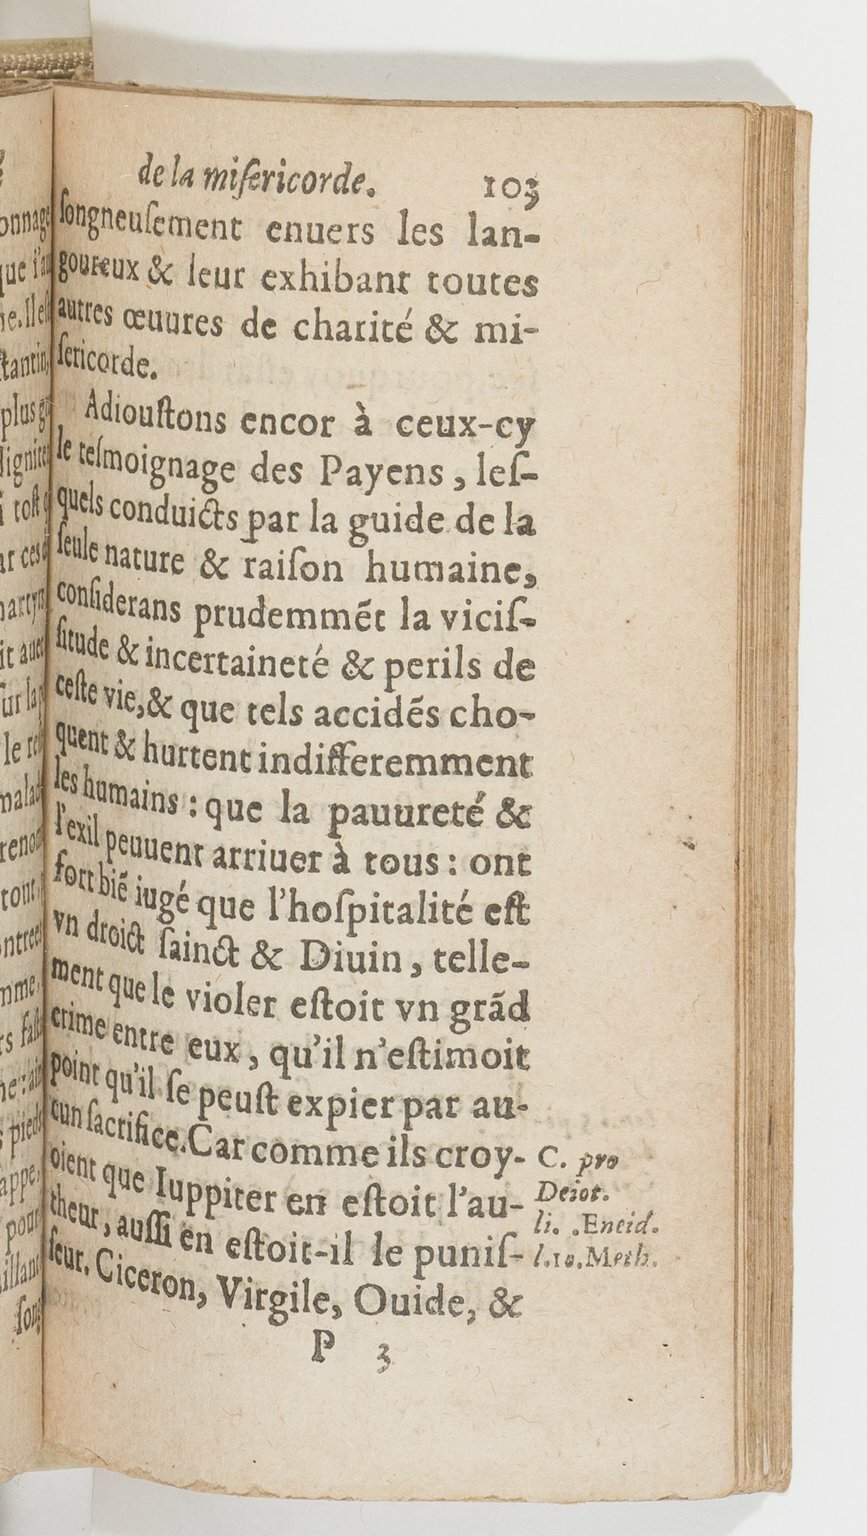 de la miſericorde. 103
ſongneuſement enuers les lan-
goureux & leur exhibant toutes
autres œuures de charité & mi-
ſericorde.
Adiouſtons encor à ceux-cy
le teſmoignage des Payens, leſ-
quels conduicts par la guide de la
ſeule nature & raiſon humaine,
conſiderans prudemmẽt la viciſ-
ſitude & incertaineté & perils de
ceſte vie, & que tels accidẽs cho-
quent & hurtent indifferemment
les humains : que la pauureté &
l'exil peuuent arriuer à tous : ont
fort biẽ iugé que l'hoſpitalité eſt
vn droict ſainct & Diuin, telle-
ment que le violer eſtoit vn grãd
crime entre eux, qu'il n'eſtimoit
point qu'il ſe peuſt expier par au-
cun ſacrifice. Car comme ils croy-
oient que Iuppiter en eſtoit l'au-
theur, auſſi en eſtoit-il le puniſ-
ſeur. Ciceron, Virgile, Ouide, &
C. pro
Deiot.
li. .Eneid.
l.10.Meth.
P 3